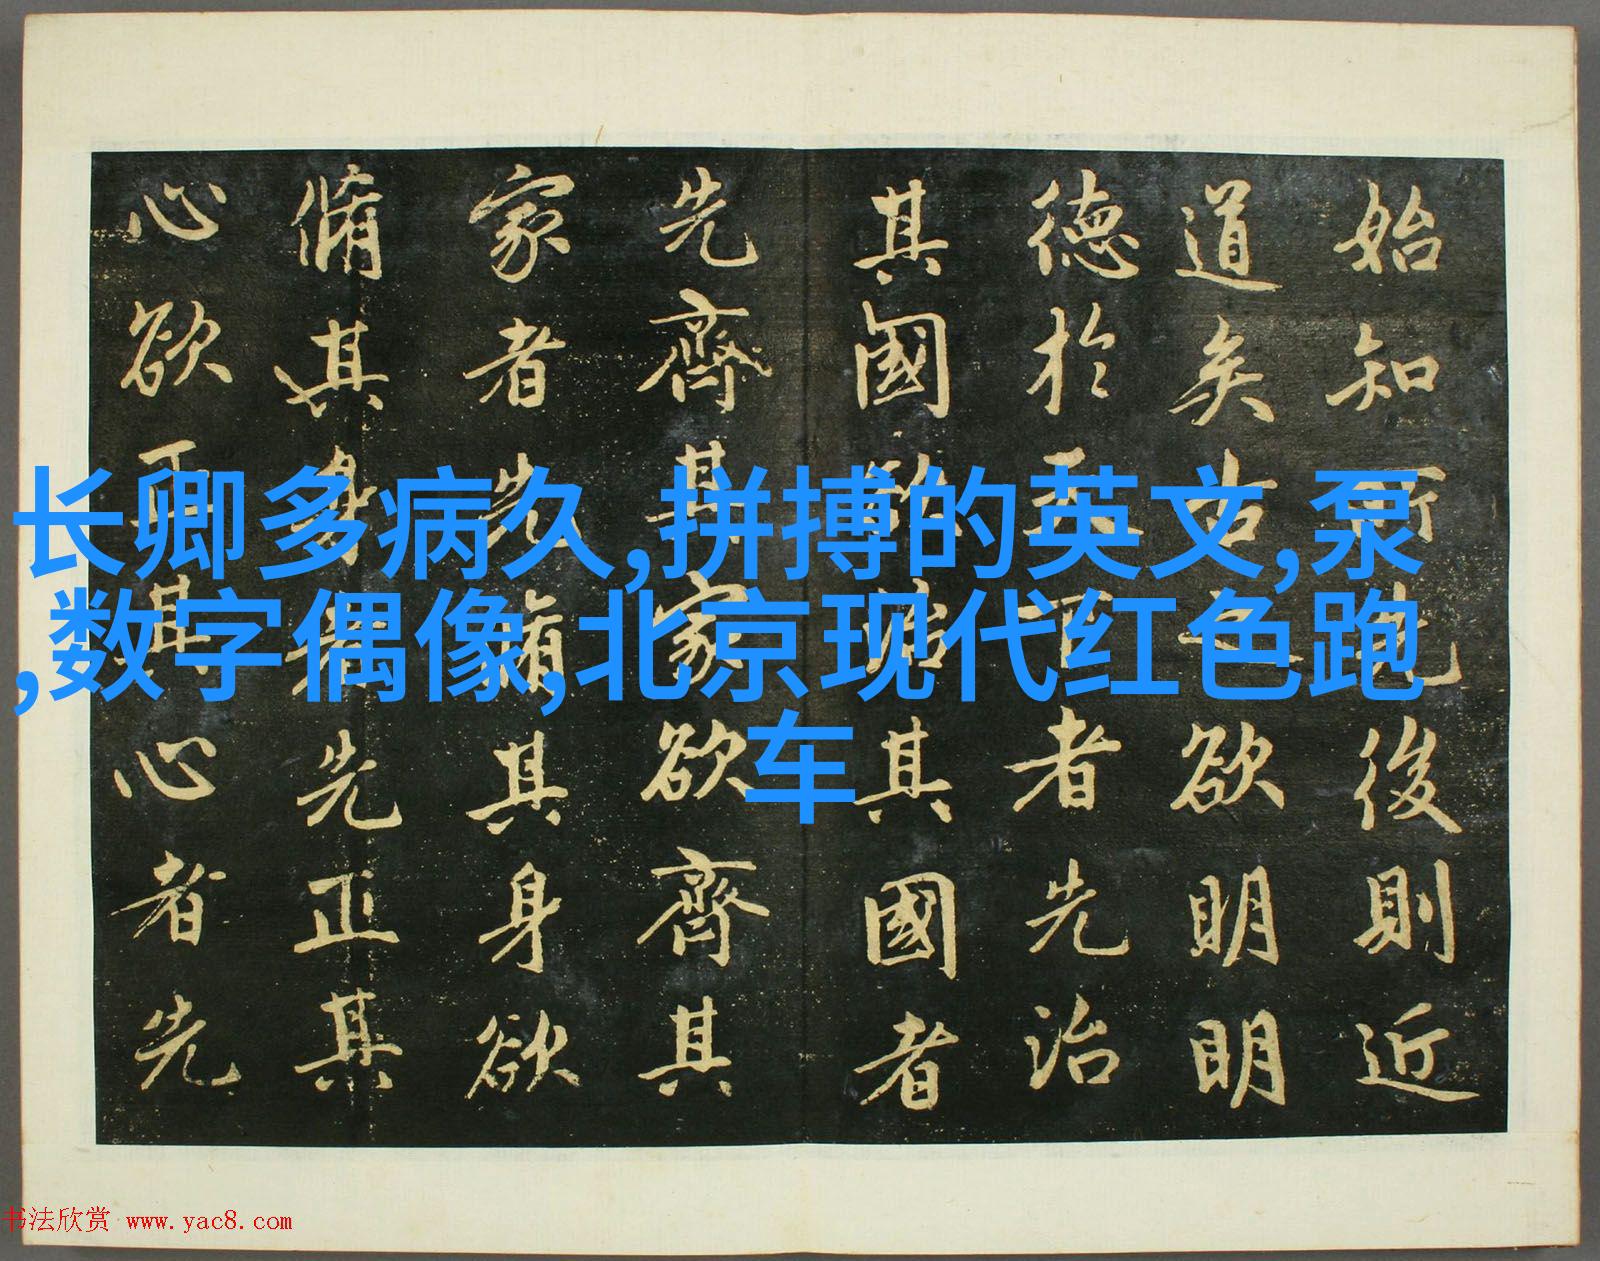 始知所先後則近
道矣古之欲明明
德於天下者先治
其國欲治其國者
先齊其家欲齊其
家者先脩其身欲
脩其身者先正其
心欲正其心者先
长卿多病久,拼搏的英文,泵
,数字偶像,北京现代红色跑
车
书法欣赏 www.yac8.com